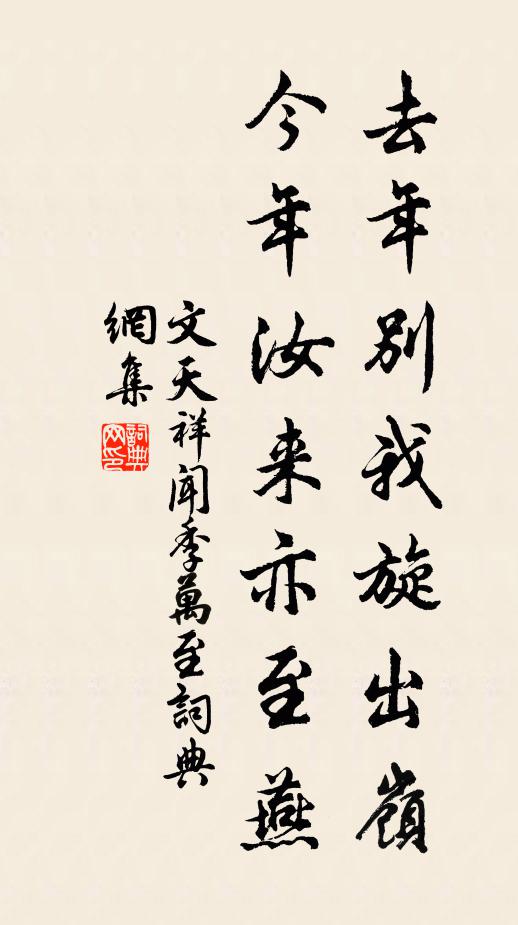 去年別我旋出嶺
今年汝来亦至燕
文天祥闻季萬至詞典
網集
詞典
网印